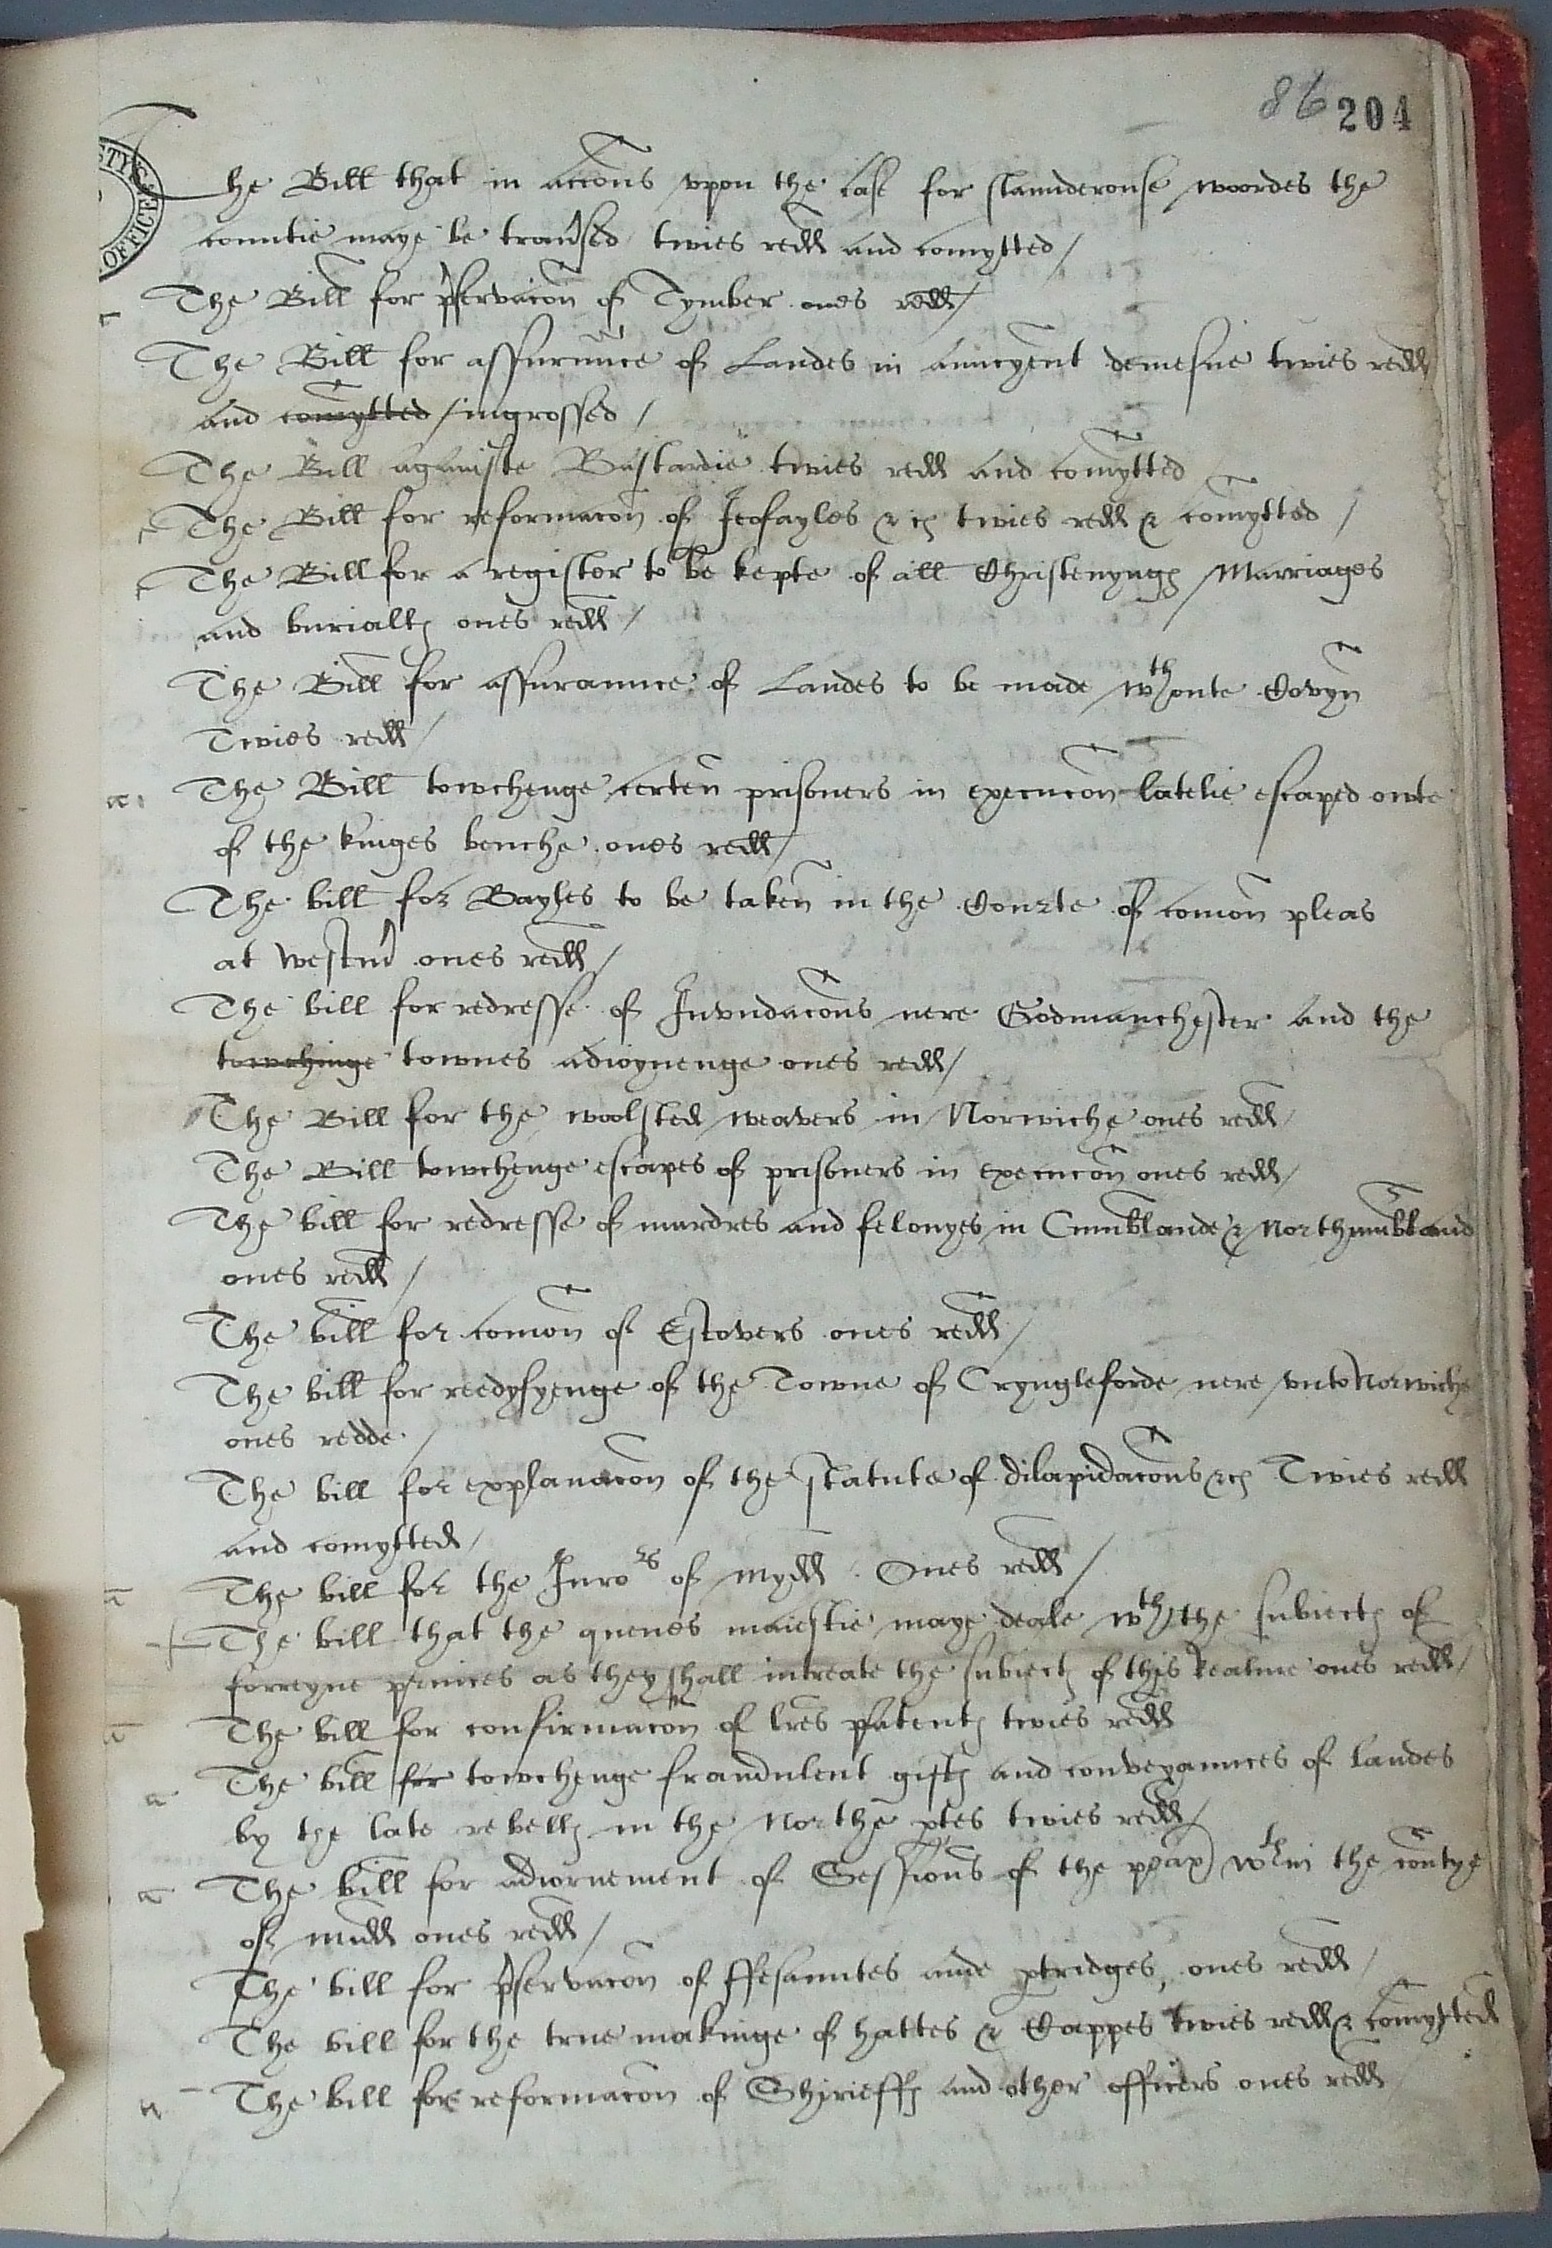 86 204
The Bill that in accons vpon the case for slaunderouse woordes the
countie maye be trau'sed twies redd and comytted /
The Bill for p'servacon of Tymber ones redd /
The Bill for assuraunce of Landes in auncyent demesne twies redd
and comytted / ingrossed /
The Bill againste Bastardie twies redd and comytted
The Bill for reformacon of Jeofayles &c twies redd & comytted /
The Bill for a register to be kepte of all Christenyngs Marriages
and burialls ones redd /
The Bill for assuraunce of Landes to be made wth oute Covyn
Twies redd /
The Bill towchenge certen prisoners in execucon latelie escaped owte
of the kinges benche ones redd /
The bill for Bayles to be taken in the Courte of comon pleas
at Westm' ones redd /
The bill for redresse of Invndacons nere Godmanchester and the
towchinge townes adioynenge ones redd /
The Bill for the woolsted weavers in Norwiche ones redd /
The Bill towchenge escapes of prisoners in execucon ones redd /
The bill for redresse of murdres and felonyes in Cumblande & Northumbland
ones redd /
The bill for comon of Estovers ones redd /
The bill for reedyfyenge of the Towne of Cryngleforde nere vnto Norwiche
ones redde /
The bill for explanacon of the statute of dilapidacons &c Twies redd
and comytted /
The bill for the Juro rs of Mydd. Ones redd /
The bill that the quenes maiestie maye deale wth the subiects of
forreyne princes as they shall intreate the subiects of this Realme ones redd /
The bill for confirmacon of lres patents twies redd
The bill for towchenge fraudulent gifts and conveyaunces of landes
by the late rebells in the Northe ptes twies redd /
The bill for adiornement of Sessions of the peax wthin the countye
of Midd ones redd /
The bill for p'servacon of ffesauntes ande ptridges, ones redd /
The bill for the true makinge of hattes & Cappes twies redd & comytted
The bill for reformacon of Shirieffs and other officers ones redd